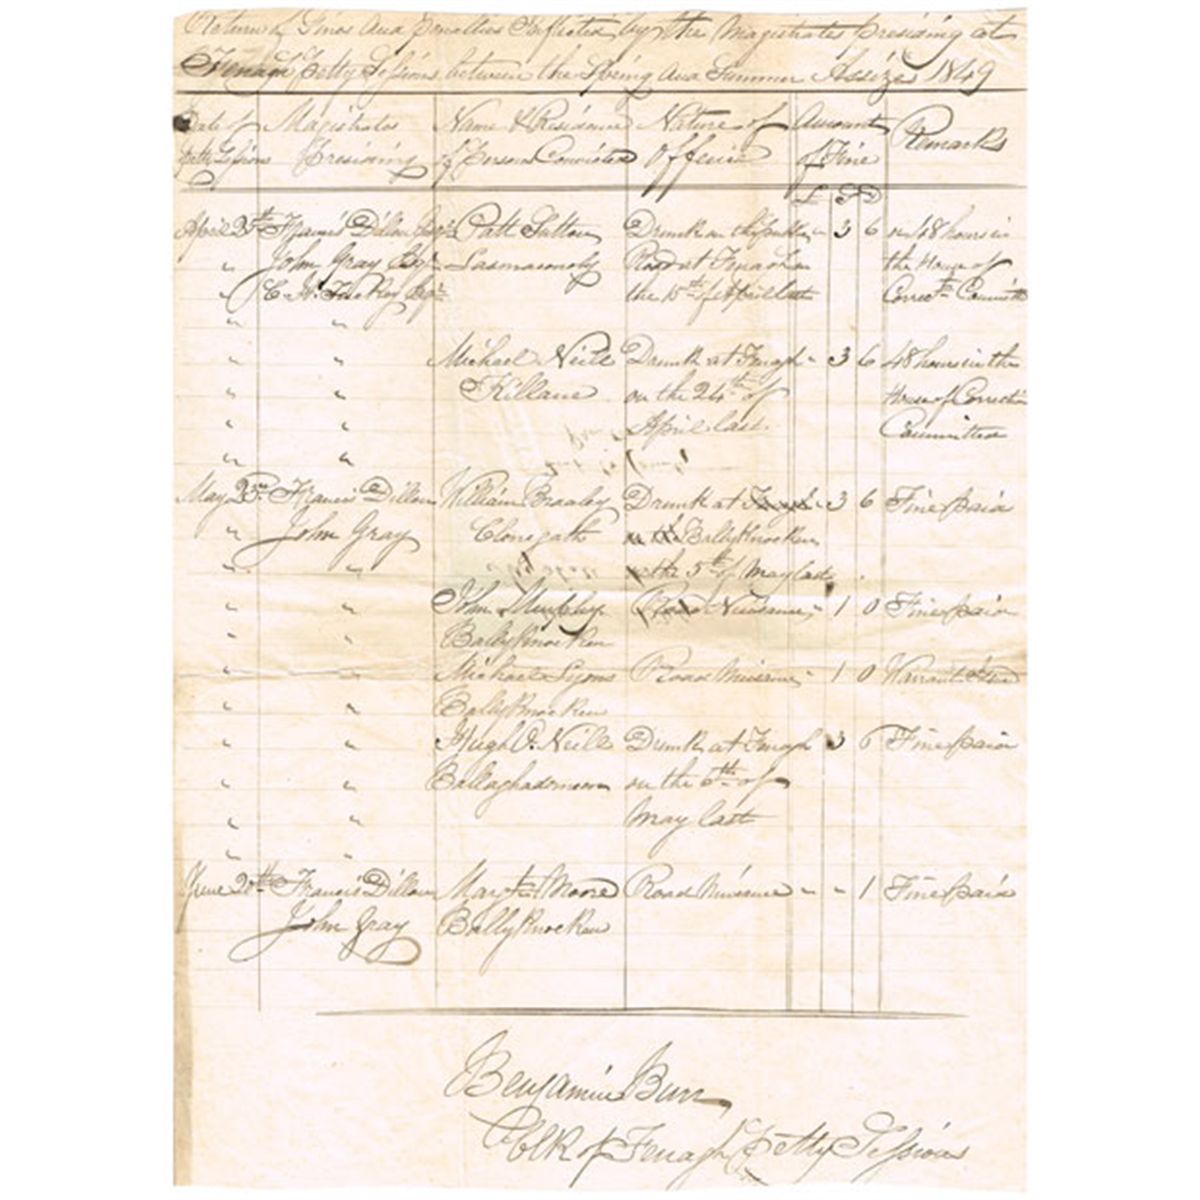 Return of Fines and Penalties Inflicted by the Magistrates presiding at
Fenagh petty Sessions between the Spring and Summer Assizes 1849
Date of Magistrates Name & Residence Nature of Amount Remarks
Petty Sessions Presiding of Person Convicted Offence of Fine
£ S D
April 25th Francis Dillon Esqr Patt Drunk on the public " 3 6 or 48 hours in
" John Gray Esqr Road at Fenagh on the House of
" C. H. Esqr the 15th of April last Correctn Committed
" "
" " Michael Neill Drunk at Fenagh " 3 6 48 hours in the
" " Killane on the 24th of House of Correction
" " April last. Committed
" "
May 23rd Francis Dillon William Drunk at Fenagh " 3 6 Fine paid
" John Gray Clonegath Ballyknocken
" " the 5th of May last
" " John Murphy Road Nuisance " 1 0 Fine paid
" " Ballyknocken
" " Michael Lyons Road Nuisance " 1 0 Warrant
" " Ballyknocken
" " Hugh O. Neill Drunk at Fenagh 3 6 Fine paid
" " on the 6th of
" " May last
" "
June 20th Francis Dillon Moore Road Nuisance " " 1 Fine paid
John Gray Ballyknocken
Benjamin Burr
Clk of Fenagh Petty Sessions